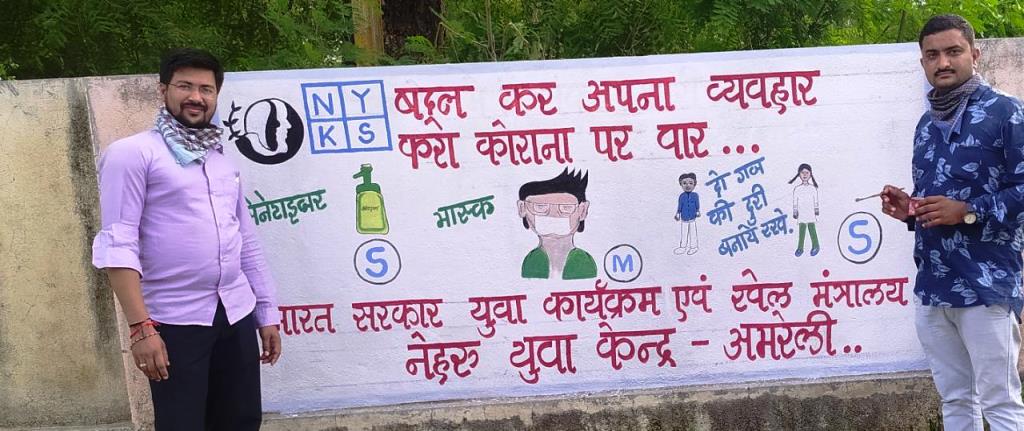 NY
KS
बदल कर अपना व्यवहार
करो कोराना पर वार...
सेनेटाइजर
S
मास्क
M
दो गज
की दुरी
बनायें रखे.
S
भारत सरकार युवा कार्यक्रम एवं खेल मंत्रालय
नेहरु युवा केन्द्र - अमरेली..